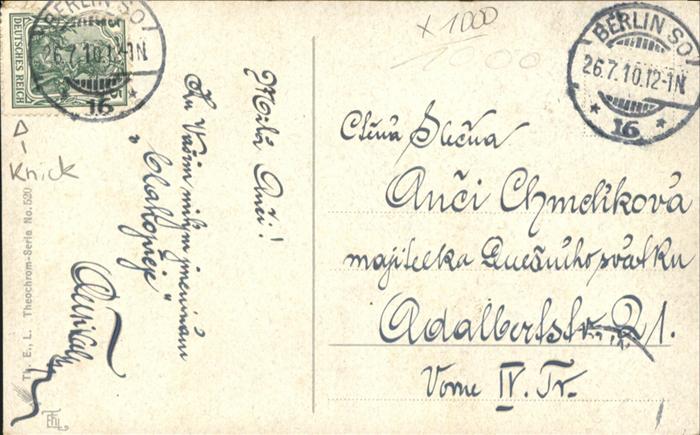 DEUTSCHES REICH
BERLIN SO
26.7.10.12-1N
* 16 *
x 1000
1000
BERLIN SO
26.7.10.12-1N
* 16 *
Knick
Th. E., L. Theochrom-Serie No. 520
Milá Anči!
Ku Vašim milým jmeninám
"blahopřeje"
Ctěná Slečna
Anči Chmelíková
majitelka dnešního svátku
Adalbertstr. 21.
Vorne IV. Tr.